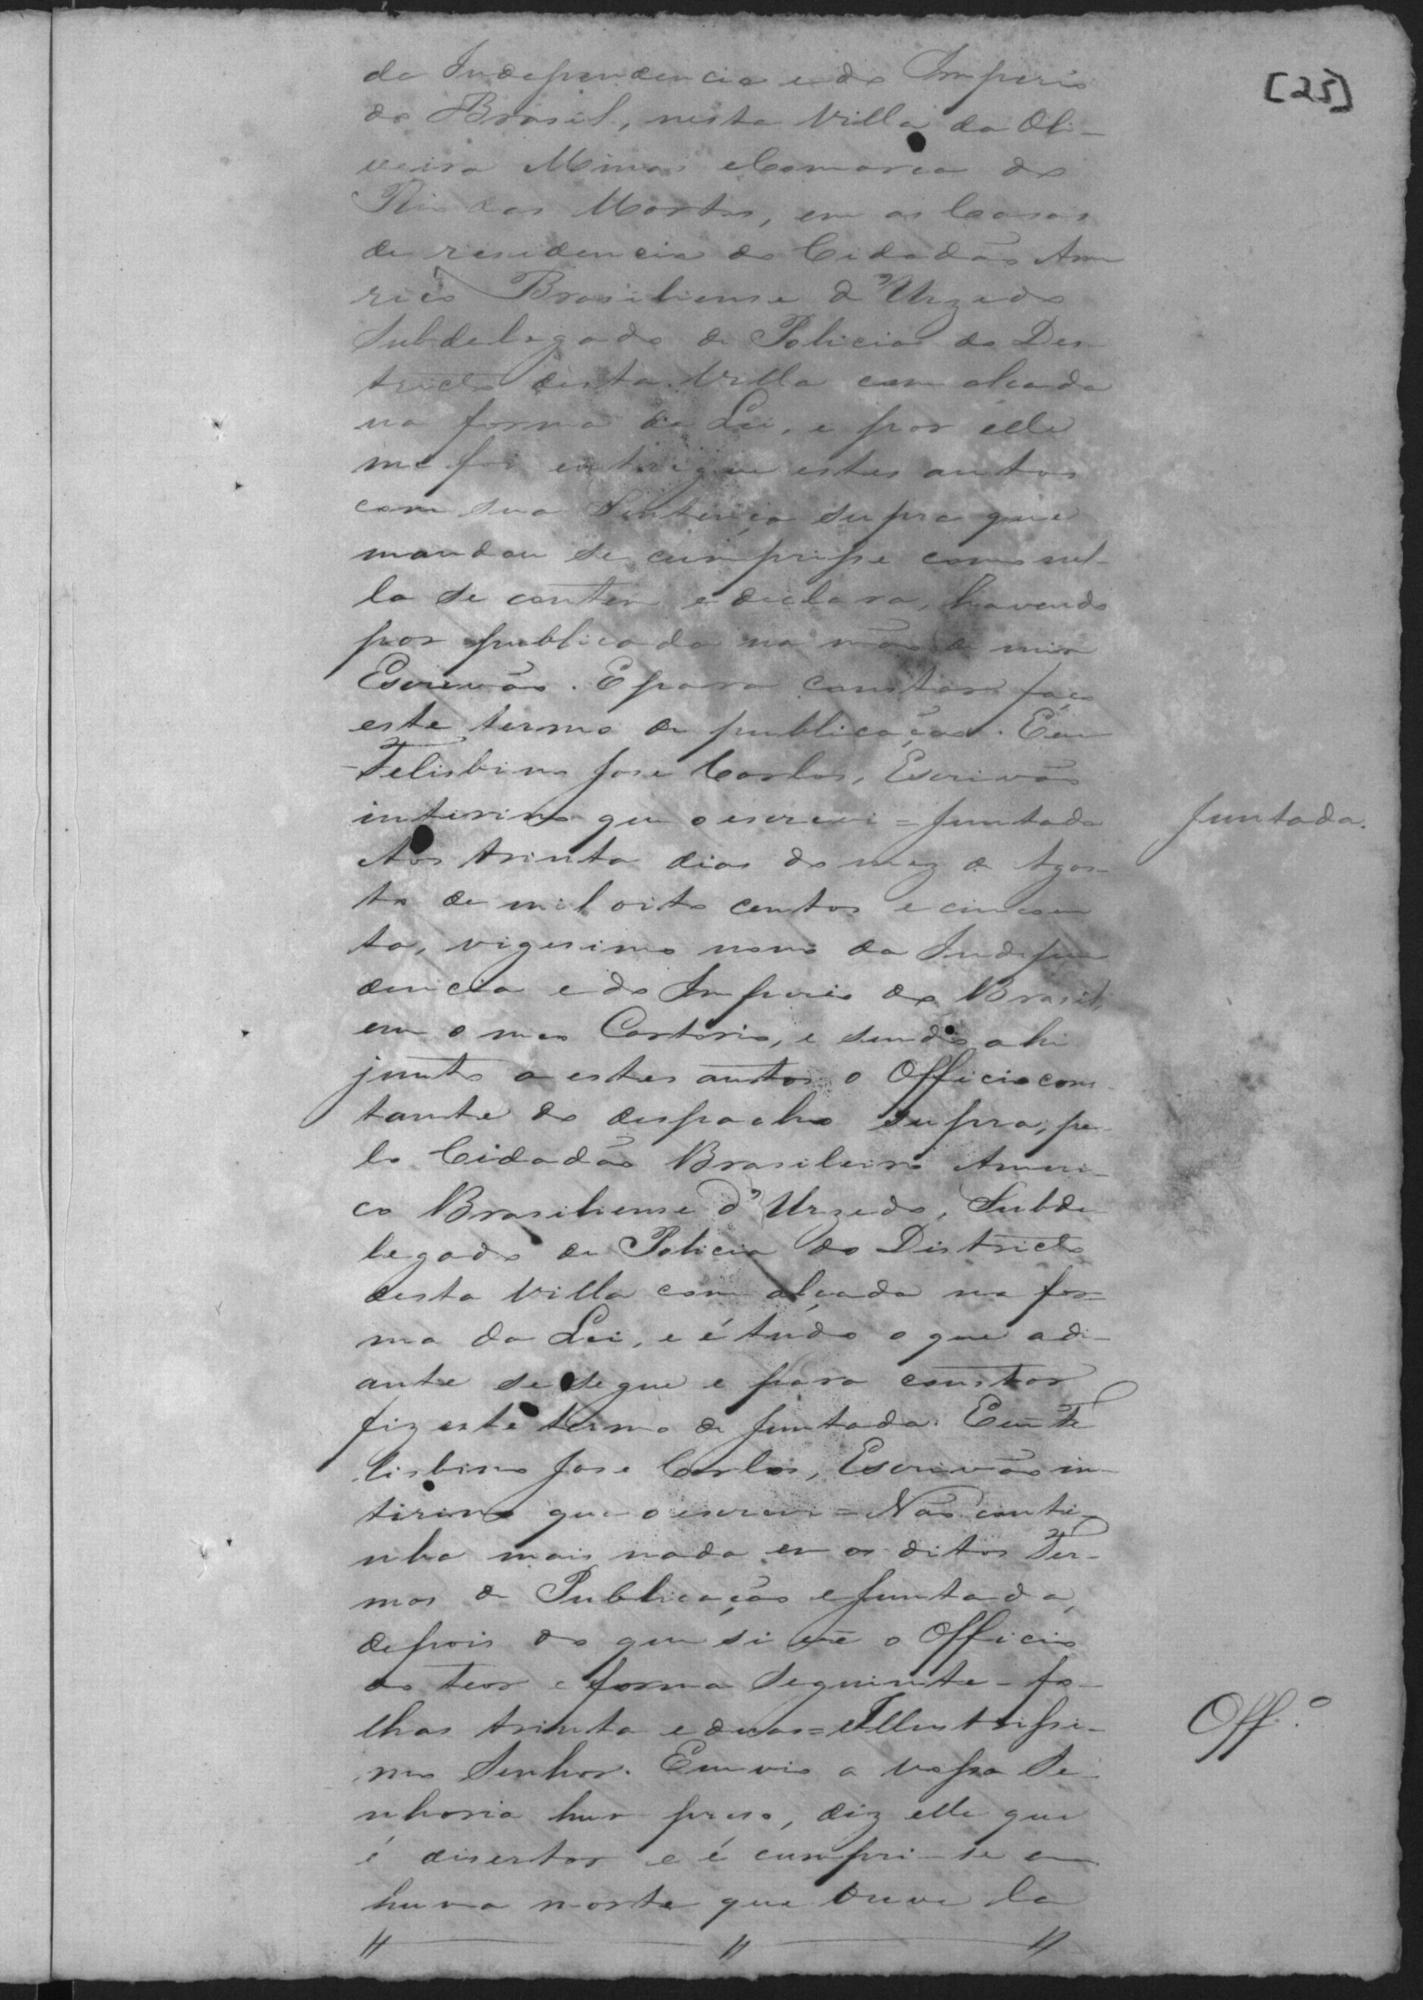 [25]
da Independencia e do Imperio
do Brasil, nesta Villa da Oli-
veira Minas e Comarca do
Rio das Mortes, em as Casas
de residencia do Cidadão Ame
rico Brasiliense d'Urzedo
Subdelegado de Policia do Des-
tricto desta Villa com alçada
na forma da Lei, e por elle
me foi entregue estes autos
com sua Sentença supra que
mandou se cumprisse como nel-
la se contem e declara, havendo
por publicada na mão de mim
Escrivão. E para constar faço
este termo de publicação. Eu
Felisbino Jose Carlos, Escrivão
interino que o escrevi = Juntada
Juntada.
Aos trinta dias do mez de Agos-
to de mil oito centos e cincoen
ta, vigesimo nono da Indepen
dencia e do Imperio do Brasil,
em o meo Cartorio, e sendo ahi
junto a estes autos o Officio cons-
tante do despacho supra, pe-
lo Cidadão Brasileiro Ameri-
co Brasiliense d'Urzedo, Subde
legado de Policia do Districto
desta Villa com alçada na for-
ma da Lei, e é tudo o que adi-
ante se segue e para constar
fiz este termo de Juntada. Eu Fe
lisbino Jose Carlos, Escrivão in-
tirino que o escrevi = Não conti-
nha mais nada em os ditos Ter-
mos de Publicação e Juntada,
depois do que si vê o Officio
do teor e forma seguinte - fo-
lhas trinta e duas = Illustrissi-
Off.º
mo Senhor. Envio a vossa Se-
nhoria hum preso, diz elle que
é disertor e é cumpri-se em
huma morte que teve la